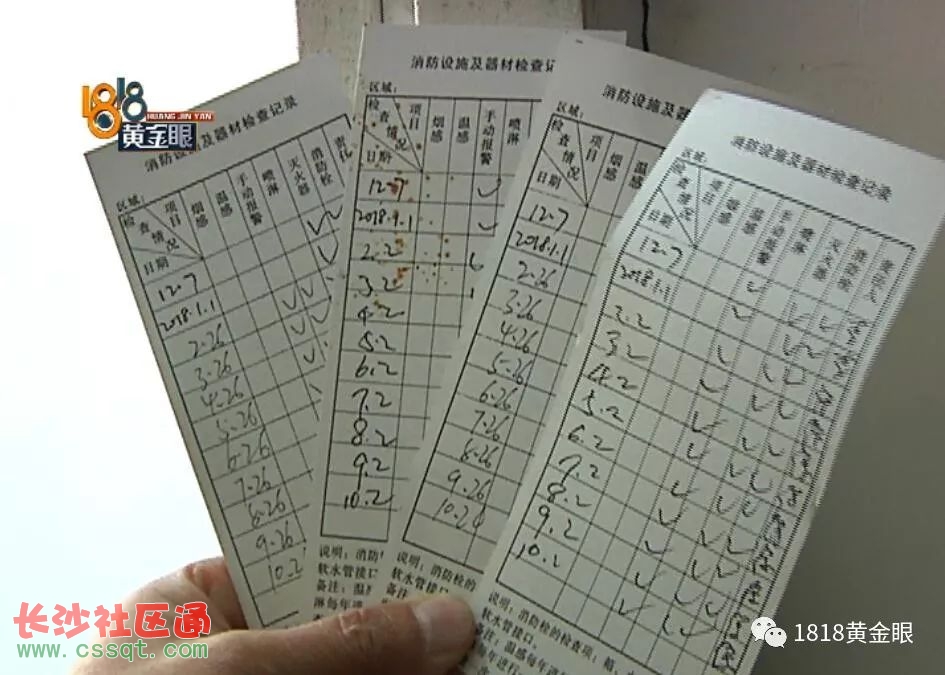 1818
HUANG JIN YAN
黄金眼
消防设施及器材检查记录
区域:
检查情况 项目 日期 烟感 温感 手动报警 喷淋 灭火器 消防栓 责任
12.7
2018.1.1
2.26
3.26
4.26
5.26
6.26
7.26
8.26
9.26
10.2
消防设施及器材检查记
区域:
检查情况 项目 日期 烟感 温感 手动报警 喷淋
12.7
2018.1.1
2.2
3.2
4.2
5.2
6.2
7.2
8.2
9.2
10.2
说明:消防
软水管接口
备注:温
淋每年进
消防设施及器
区域:
检查情况 项目 日期 烟感 温感
12.7
2018.1.1
2.26
3.26
4.26
5.26
6.26
7.26
8.26
9.26
10.26
说明:消防栓的
软水管接
备注:
消防设施及器材检查记录
区域:
检查情况 项目 日期 烟感 温感 手动报警 喷淋 灭火器 消防栓 责任人
12.7
2018.1.1
2.2
3.2
4.2
5.2
6.2
7.2
8.2
9.2
10.2
说明:消防栓的检查项:箱、
软水管接口。
备注:温感每年进
每年进行
长沙社区通
www.cssqt.com
1818黄金眼